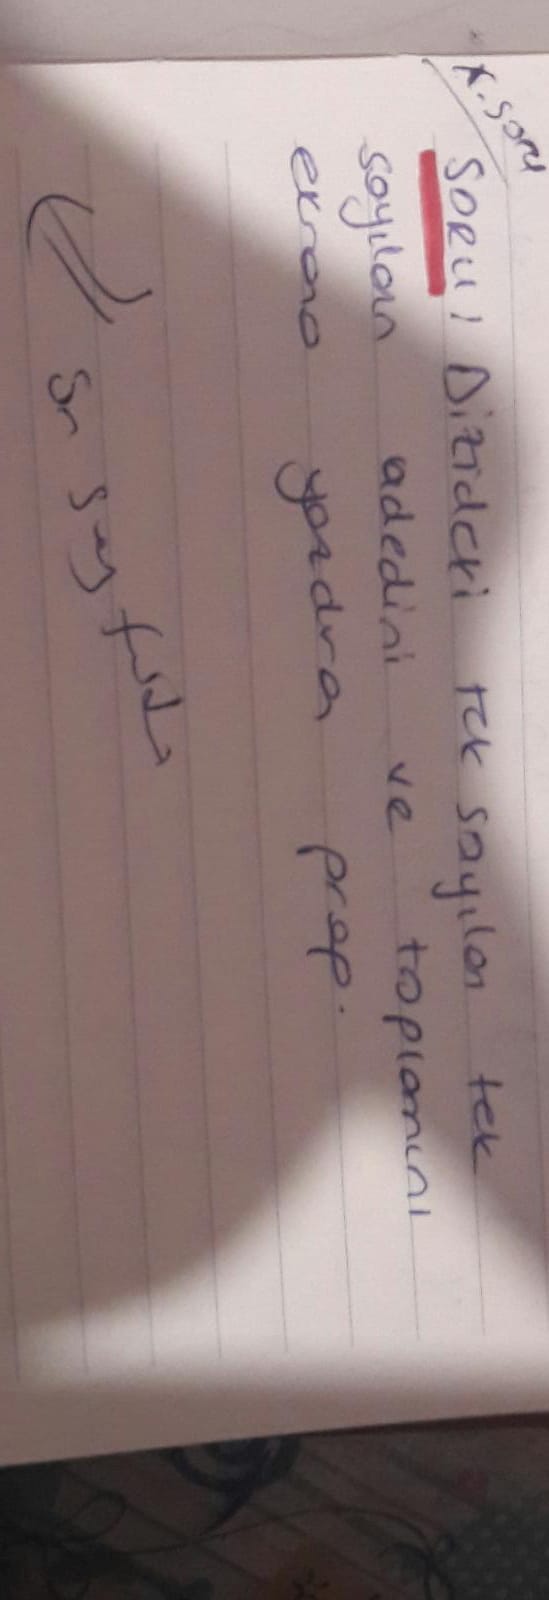 K. Soru
SORU: Dizideki tek sayıları tek
sayıların adedini ve toplamını
ekrana yazdıra prog.